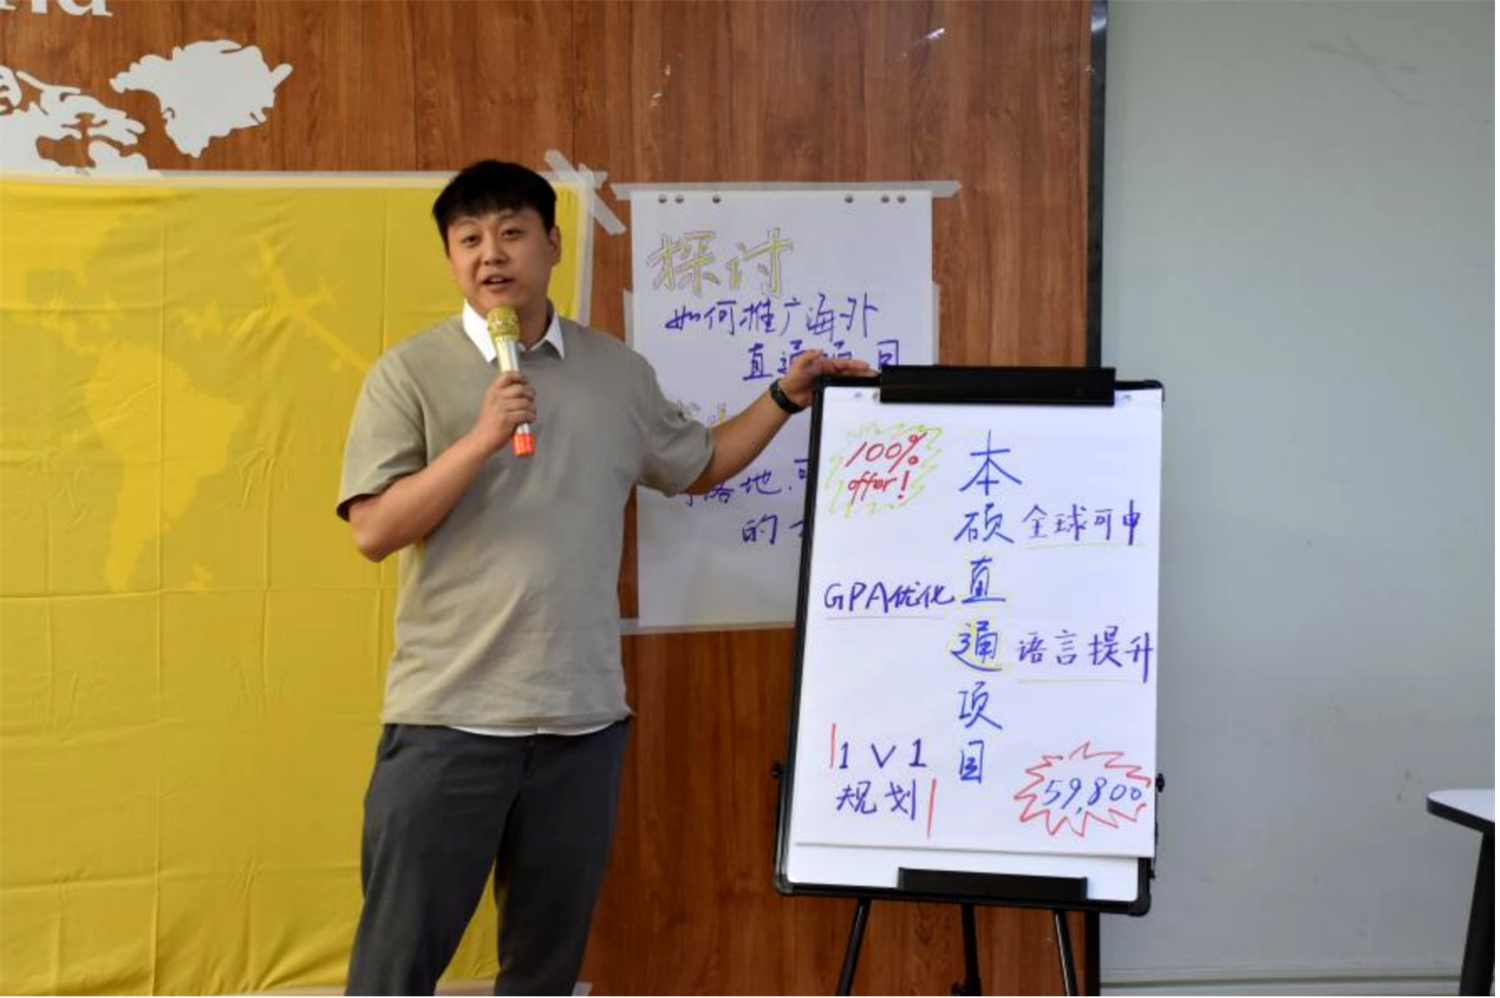 探讨
如何推广海外
直通项目
落地.可
的
100%
offer!
本硕直通项目
全球可申
GPA优化
语言提升
1V1
规划
59,800